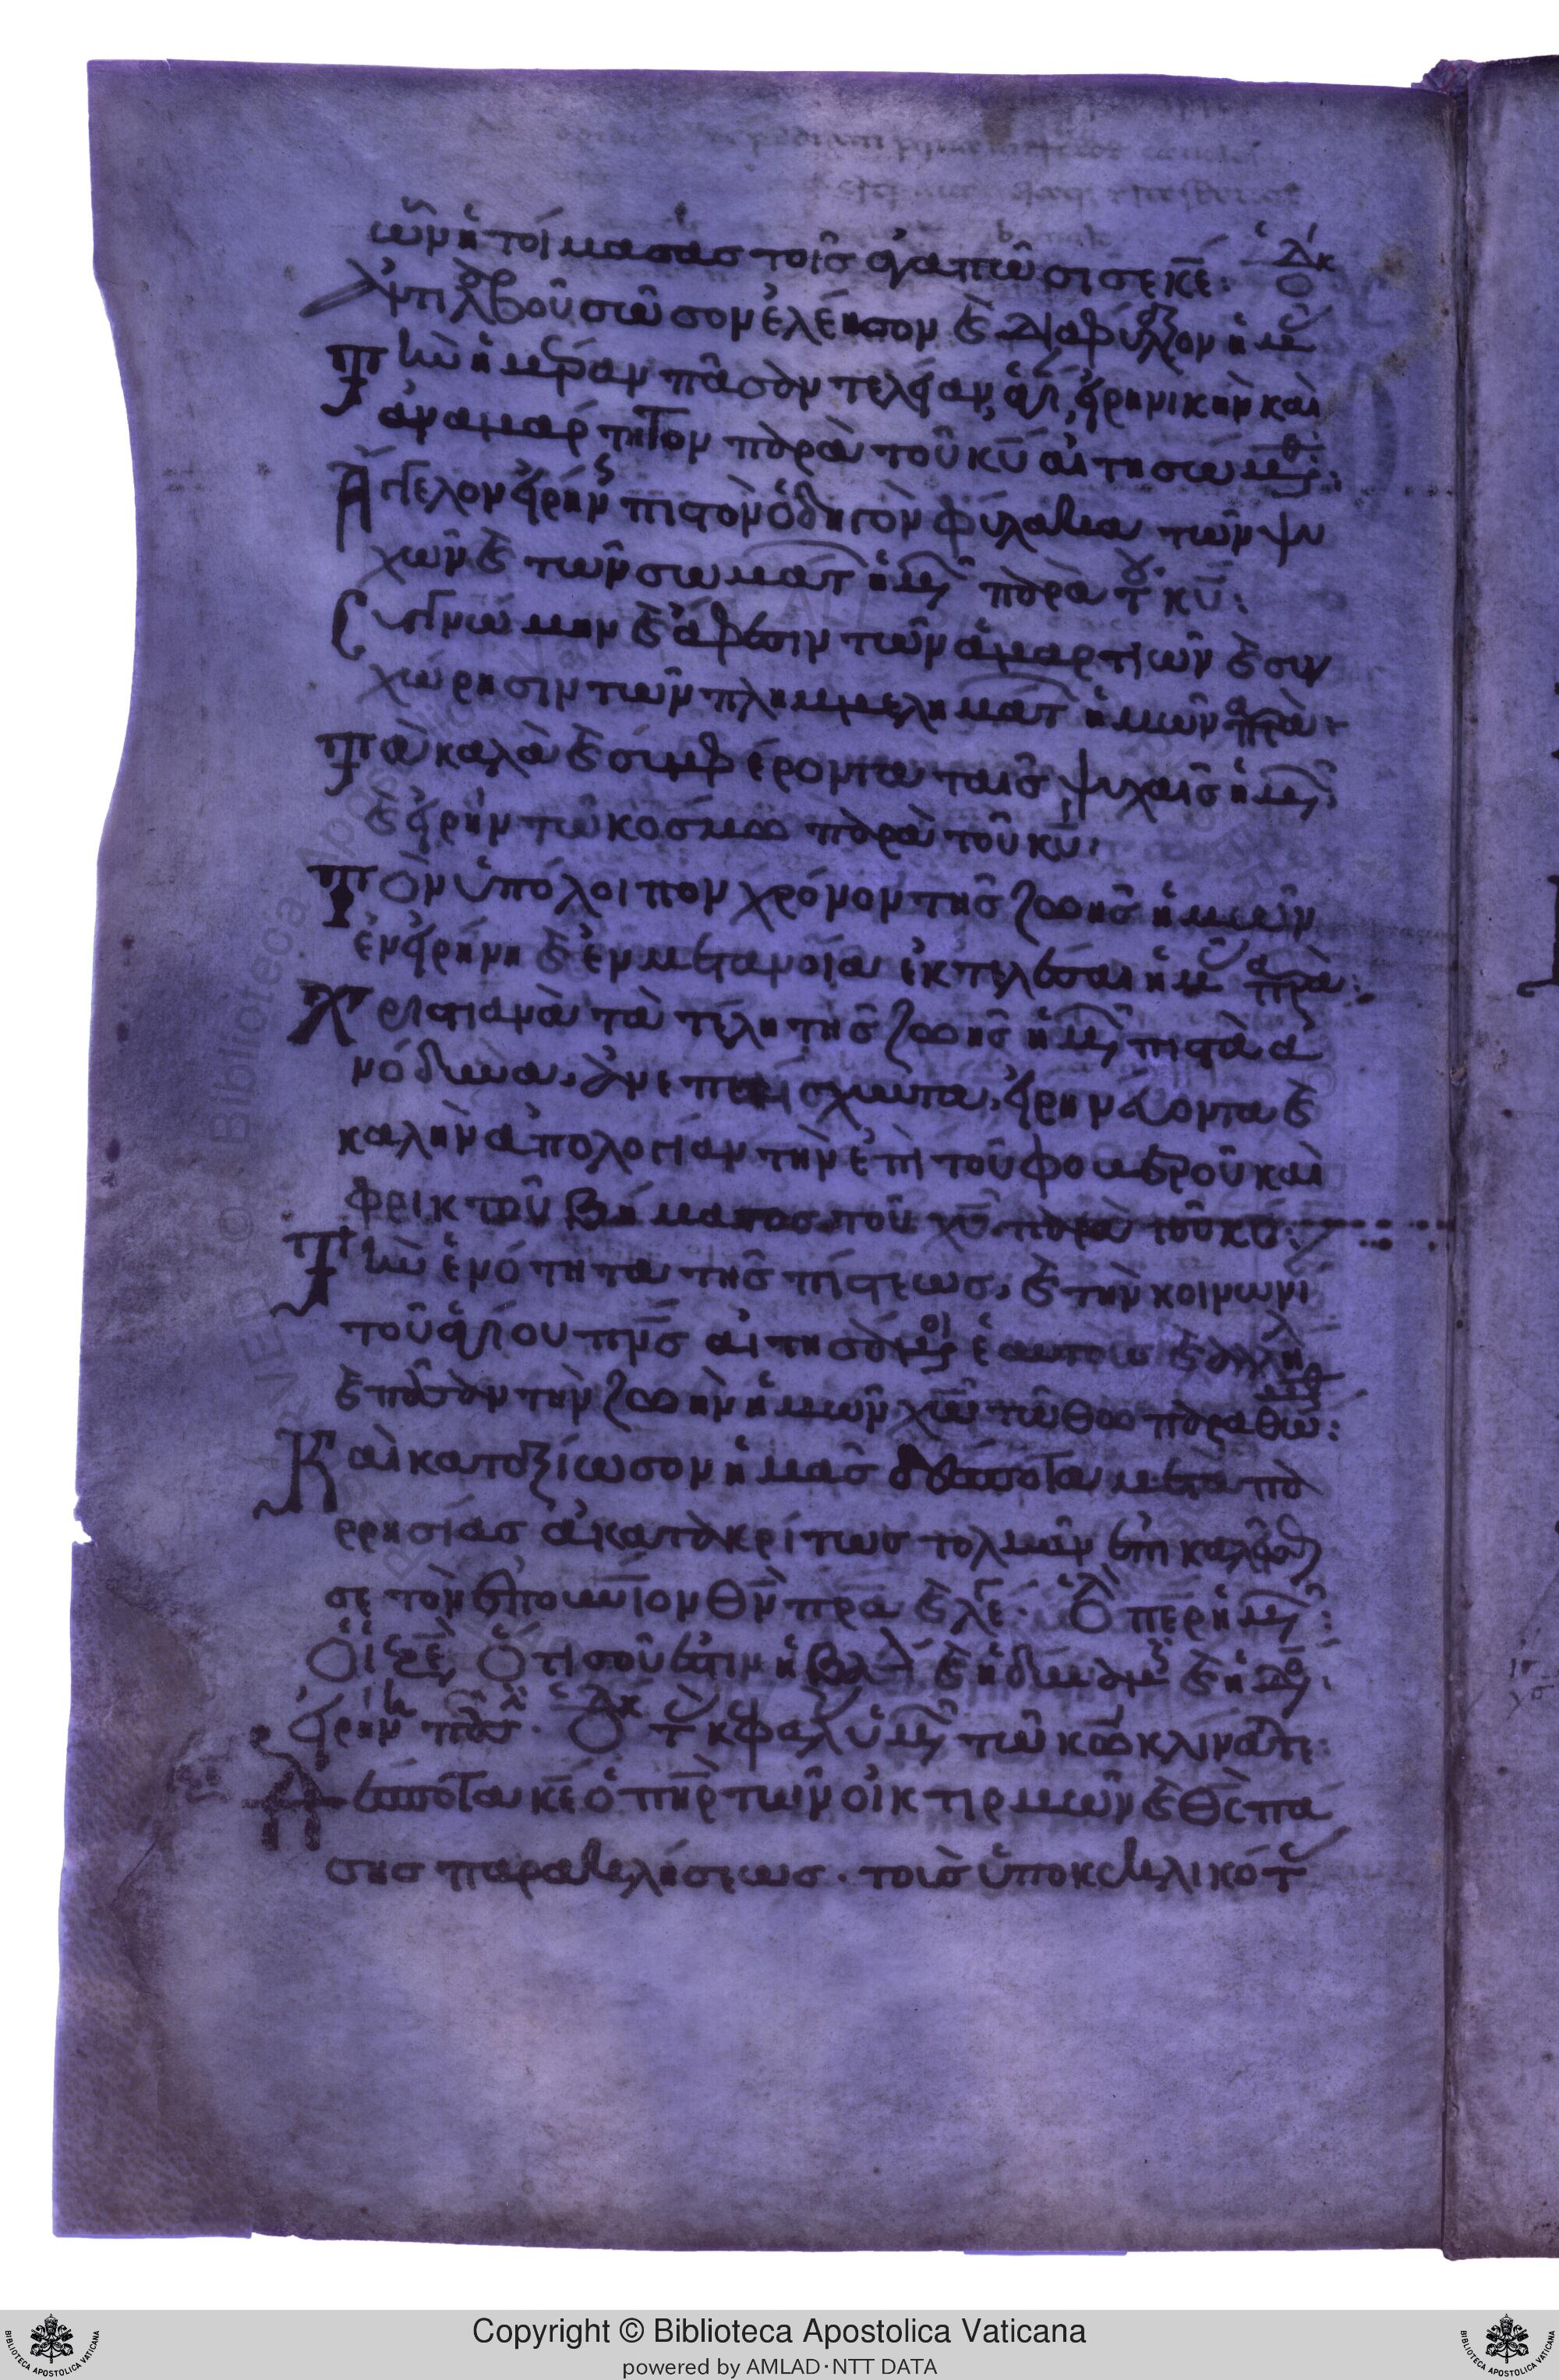 ὧν ἡτοίμασας τοῖς ἀγαπῶσι σε κε: ὁ δκ
Ἀντιλβοῦ σῶσον ἐλέησον καὶ διαφύλξον ἡμ
Τὴν ἡμέραν πᾶσαν τελείαν, ἁγι, εἰρηνικὴν καὶ
ἀναμάρτητον παρὰ τοῦ κυ αἰτησώμεθ:
Ἄγγελον εἰρήν πιστὸν ὁδηγὸν φύλακα τῶν ψυ
χῶν καὶ τῶν σωμάτ ἡμ παρὰ τ κυ:
Συγγνώμην καὶ ἄφεσιν τῶν ἁμαρτιῶν καὶ συγ
χώρησιν τῶν πλημμελημάτ ἡμῶν παρὰ:
Τὰ καλὰ καὶ συμφέροντα ταῖς ψυχαῖς ἡμ,
καὶ εἰρήν τῶ κόσμω παρὰ τοῦ κυ:
Τὸν ὑπόλοιπον χρόνον τῆς ζωῆς ἡμῶν
ἐν εἰρήνη καὶ ἐν μετανοία ἐκτελέσαι ἡμ παρὰ:
Χριστιανὰ τὰ τέλη τῆς ζωῆς ἡμ πιστὰ ἀ
νόδυνα, ἀνεπαίσχυντα, εἰρηνάζοντα καὶ
καλὴν ἀπολογίαν τὴν ἐπὶ τοῦ φοβεροῦ καὶ
φρικτοῦ βήματος τοῦ χυ παρὰ τοῦ κυ:
Τὴν ἑνότητα τῆς πίστεως, καὶ τὴν κοινωνί
τοῦ ἁγίου πνς αἰτησάμενοι ἑαυτοὺς καὶ ἀλλή
καὶ πᾶσαν τὴν ζωὴν ἡμῶν χω τῶ θω παραθώμεθ:
Καὶ καταξίωσον ἡμᾶς δέσποτα μετὰ πα
ρρησίας ἀκατακρίτως τολμᾶν ἐπικαλεῖσθ
σε τὸν ἐπουράνιον θν πρα καὶ λέ· Ὁ λ περ ἡμ:
Ὁ ἱερε, Ὅτι σοῦ ἐστιν ἡ βσλ καὶ ἡ δύναμ καὶ ἡ δο:
Εἰρήν πᾶσ· Ὁ δκ τ κεφαλ ὑμ τῶ κω κλίνατε:
Δέσποτα κε ὁ πηρ τῶν οἰκτιρμῶν καὶ θς πα
σης παρακλήσεως · τοὺς ὑποκεκλικότ